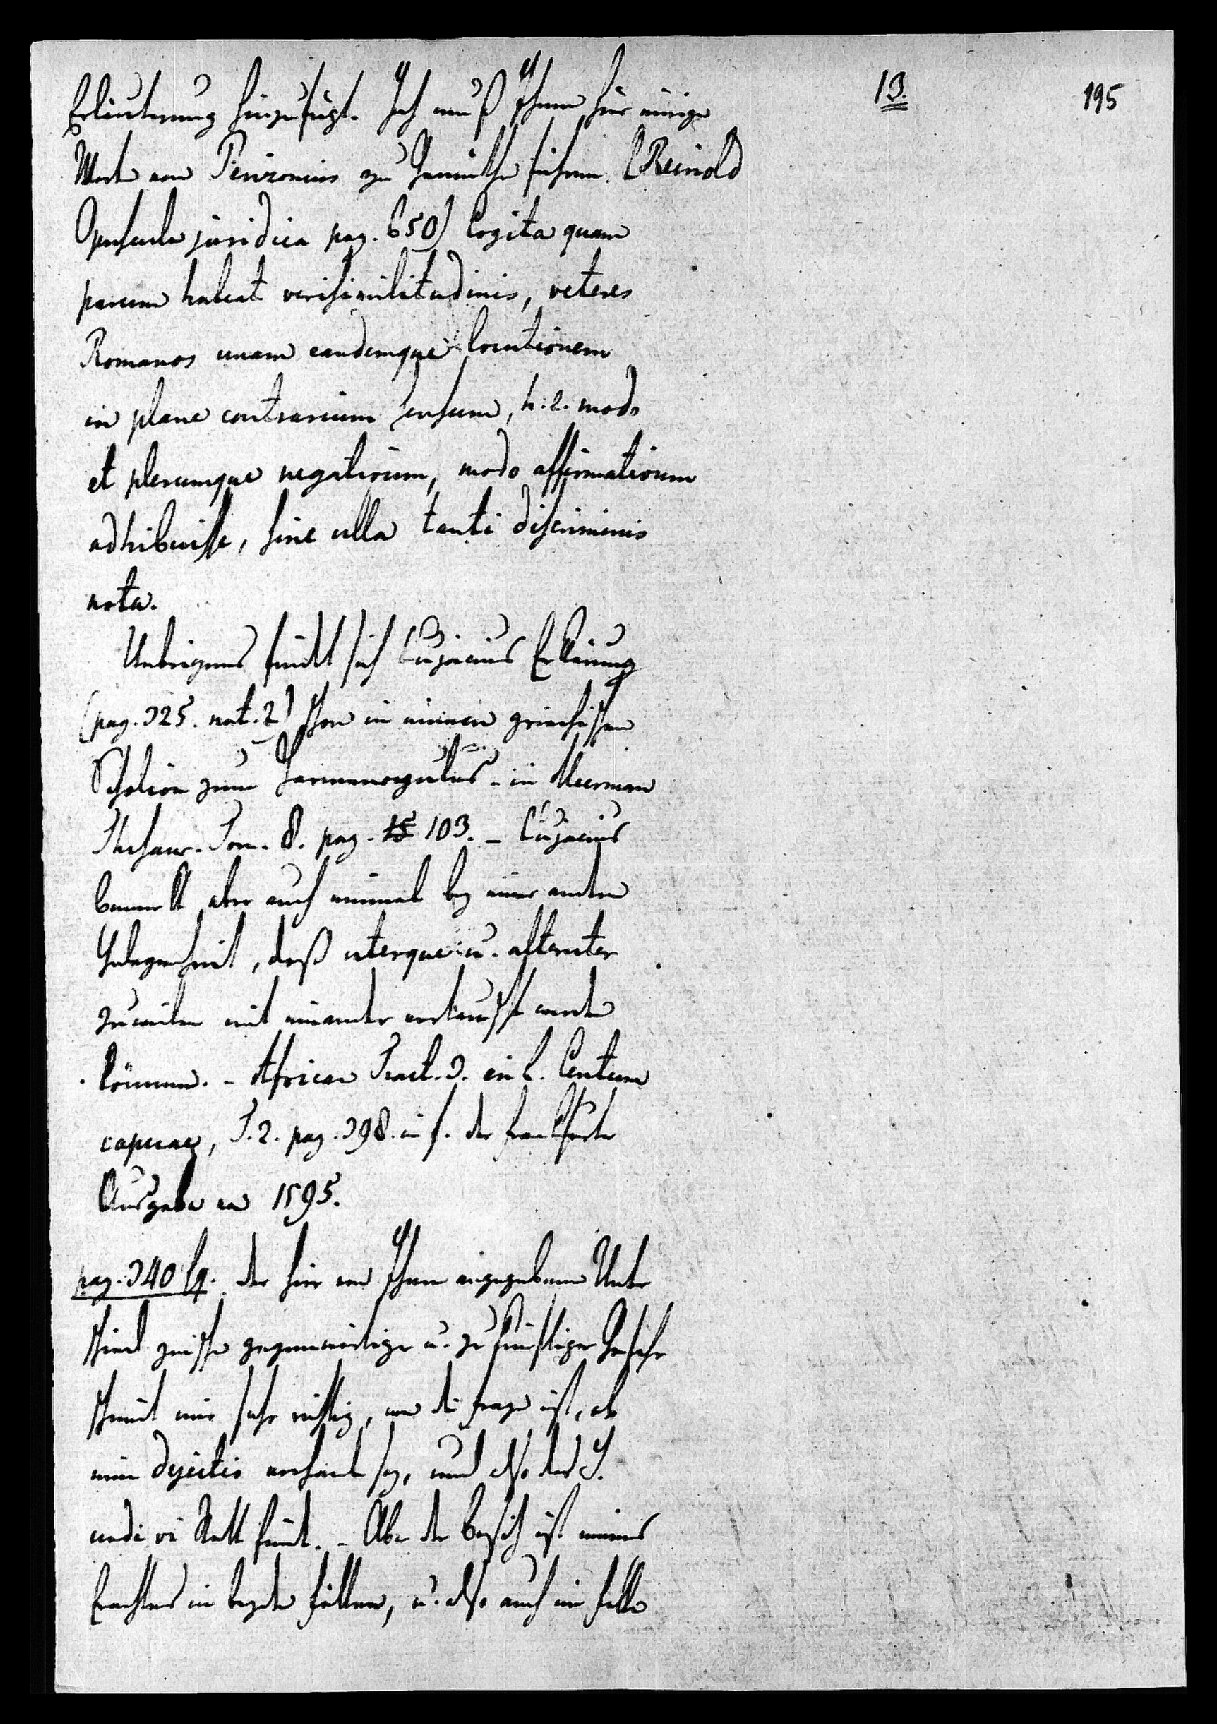 13.
195
Erläuterung hinzufügt. Ich muß Ihnen hier einige
Worte von Perizonius zu Gemüthe führen. (Reinold
Opuscula juridica pag. 650) Cogita quam
parum habeat verisimilitudinis, veteres
Romanos unam eandemque locutionem
in plane contrarium sensum, h. e. modo
et plerumque negativum, modo affirmativum
adhibuisse, sine ulla tanti discriminis
nota.
Uebrigens findet sich Cujacius Erklärung
(pag. 325. not. 2) schon in einem griechischen
Scholion zum Harmenopulus - in Meerman
Thesaur. Tom. 8. pag. 103. - Cujacius
bemerkt aber auch einmal bey einer andern
Gelegenheit, daß uterque u. alteruter
zuweilen mit einander vertauscht werden
können. - African Tract. 3. in l. Centum
capuae, T. 2. pag. 398. in f. der Frankfurter
Ausgabe von 1595.
pag. 340 sq. der hier von Ihnen angegebene Unter
schied zwischen gegenwärtiger u. zukünftiger Gefahr
scheint mir sehr richtig, wo die Frage ist, ob
eine dejectio vorhanden sey, und also das J.
unde vi Statt findet. - Aber der Besitz ist meines
Erachtens in beyden Fällen, u. also auch im Falle